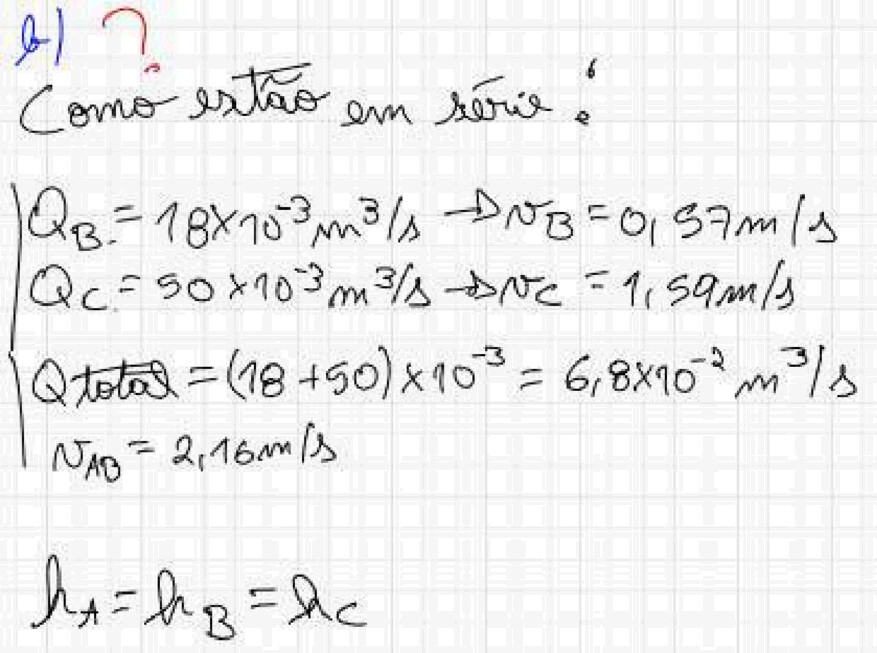 b) ?
Como estão em série:
Q_B = 18×10⁻³ m³/s → v_B = 0,57 m/s
Q_C = 50×10⁻³ m³/s → v_C = 1,59 m/s
Q total = (18+50)×10⁻³ = 6,8×10⁻² m³/s
v_AB = 2,16 m/s
h_A = h_B = h_C